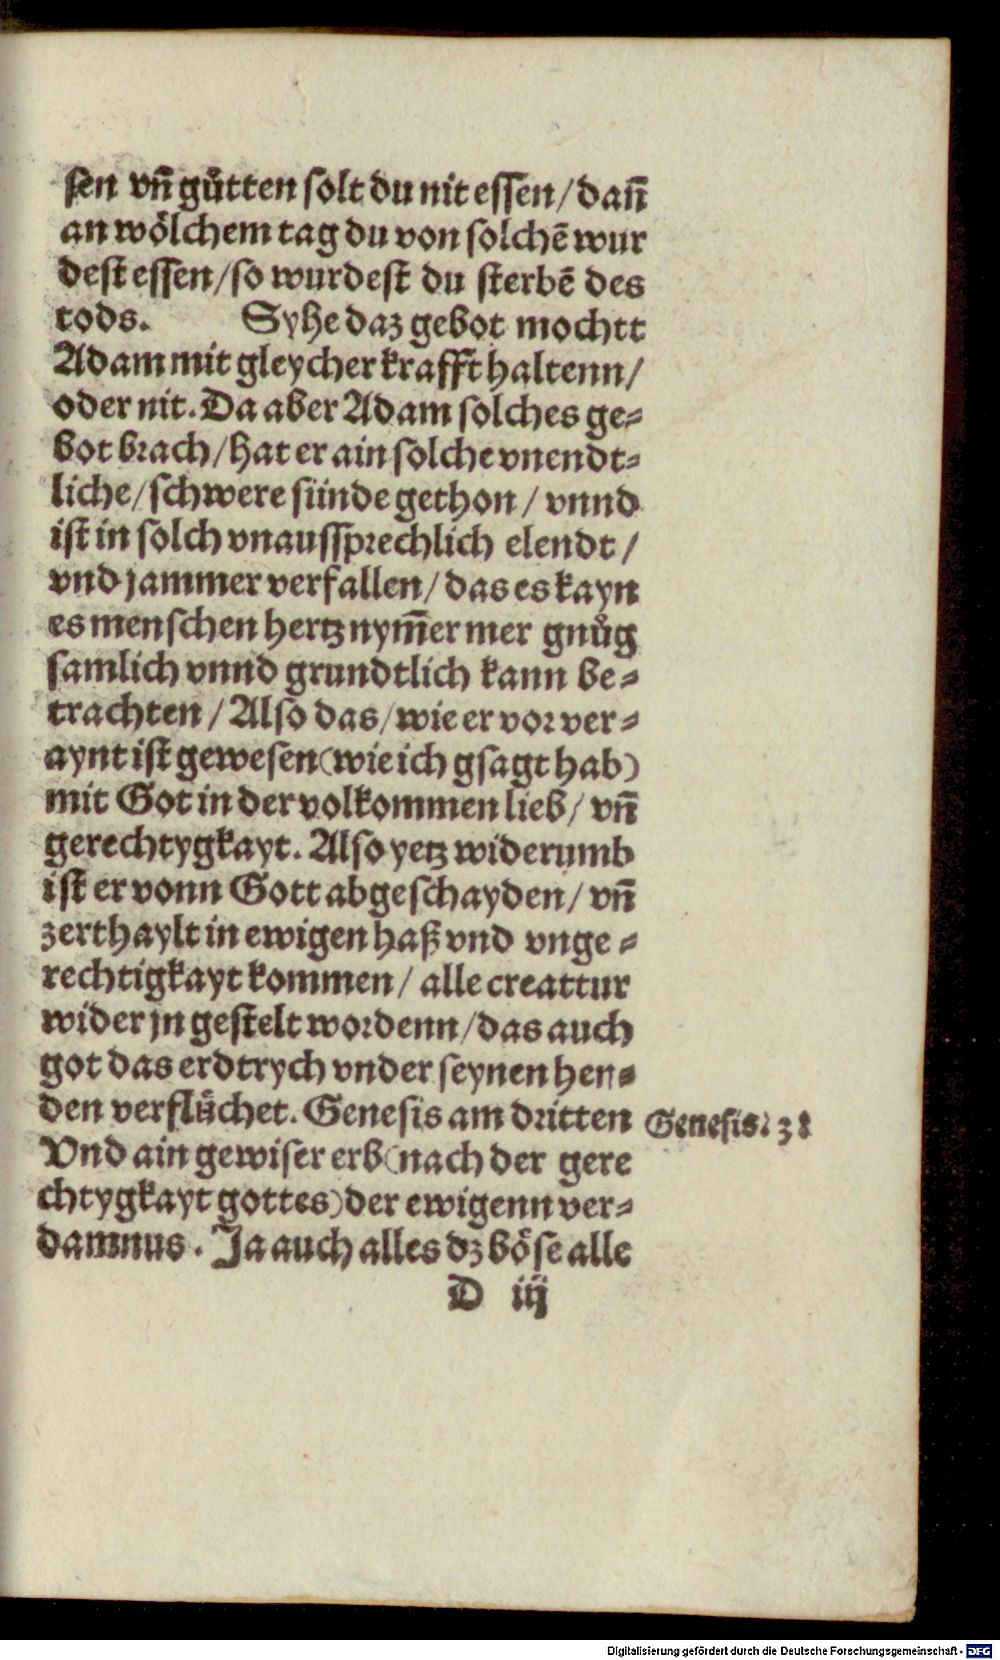 sen vñ gůtten solt du nit essen/ dañ
an wölchem tag du von solchẽ wur
dest essen/ so wurdest du sterbẽ des
tods. Syhe daz gebot mochtt
Adam mit gleycher krafft haltenn/
oder nit. Da aber Adam solches ge⸗
bot brach/ hat er ain solche vnendt⸗
liche/ schwere sünde gethon/ vnnd
ist in solch vnaussprechlich elendt/
vnd jammer verfallen/ das es kayn
es menschen hertz nym̃er mer gnůg
samlich vnnd grundtlich kann be⸗
trachten/ Also das/ wie er vor ver⸗
aynt ist gewesen (wie ich gsagt hab)
mit Got in der volkommen lieb/ vñ
gerechtygkayt. Also yetz widerumb
ist er vonn Gott abgeschayden/ vñ
zerthaylt in ewigen haß vnd vnge⸗
rechtigkayt kommen/ alle creattur
wider jn gestelt wordenn/ das auch
got das erdtrych vnder seynen hen⸗
den verflůchet. Genesis am dritten
Genesis. 3.
Vnd ain gewiser erb (nach der gere
chtygkayt gottes) der ewigenn ver⸗
damnus. Ja auch alles dz böse alle
D iij
Digitalisierung gefördert durch die Deutsche Forschungsgemeinschaft - DFG